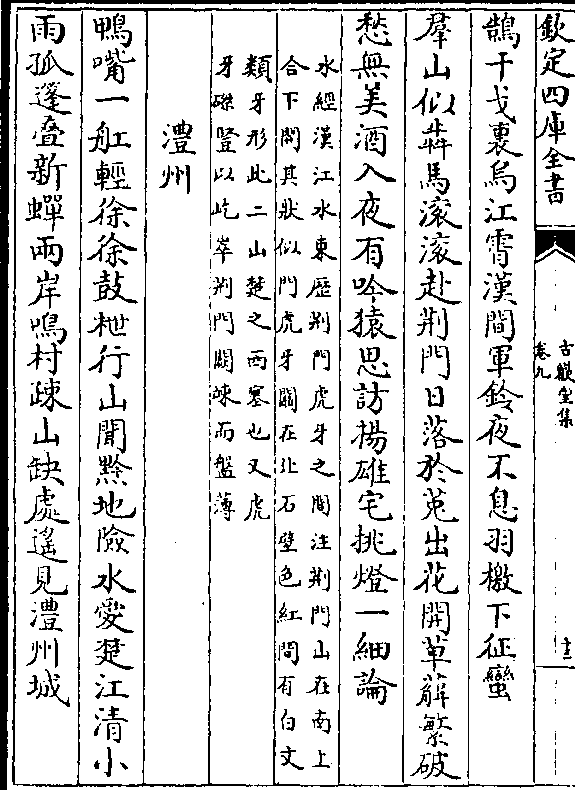 欽定四庫全書
古歡堂集
卷九
十三
鵲干戈裏烏江霄漢間軍鈴夜不息羽檄下征蠻
羣山似犇馬滚滚赴荆門日落於菟出花開草薢繁破
愁無美酒入夜有吟猿思訪楊雄宅挑燈一細論
水經漢江水東歴荆門虎牙之間注荆門山在南上
合下開其狀似門虎牙闗在北石壁色紅間有白文
類牙形此二山楚之西塞也又虎
牙磔豎以屹崒荆門闘竦而盤薄
澧州
鴨嘴一舡輕徐徐鼓枻行山聞黔地險水愛楚江清小
雨孤蓬疊新蟬兩岸鳴村疎山缺處遙見澧州城